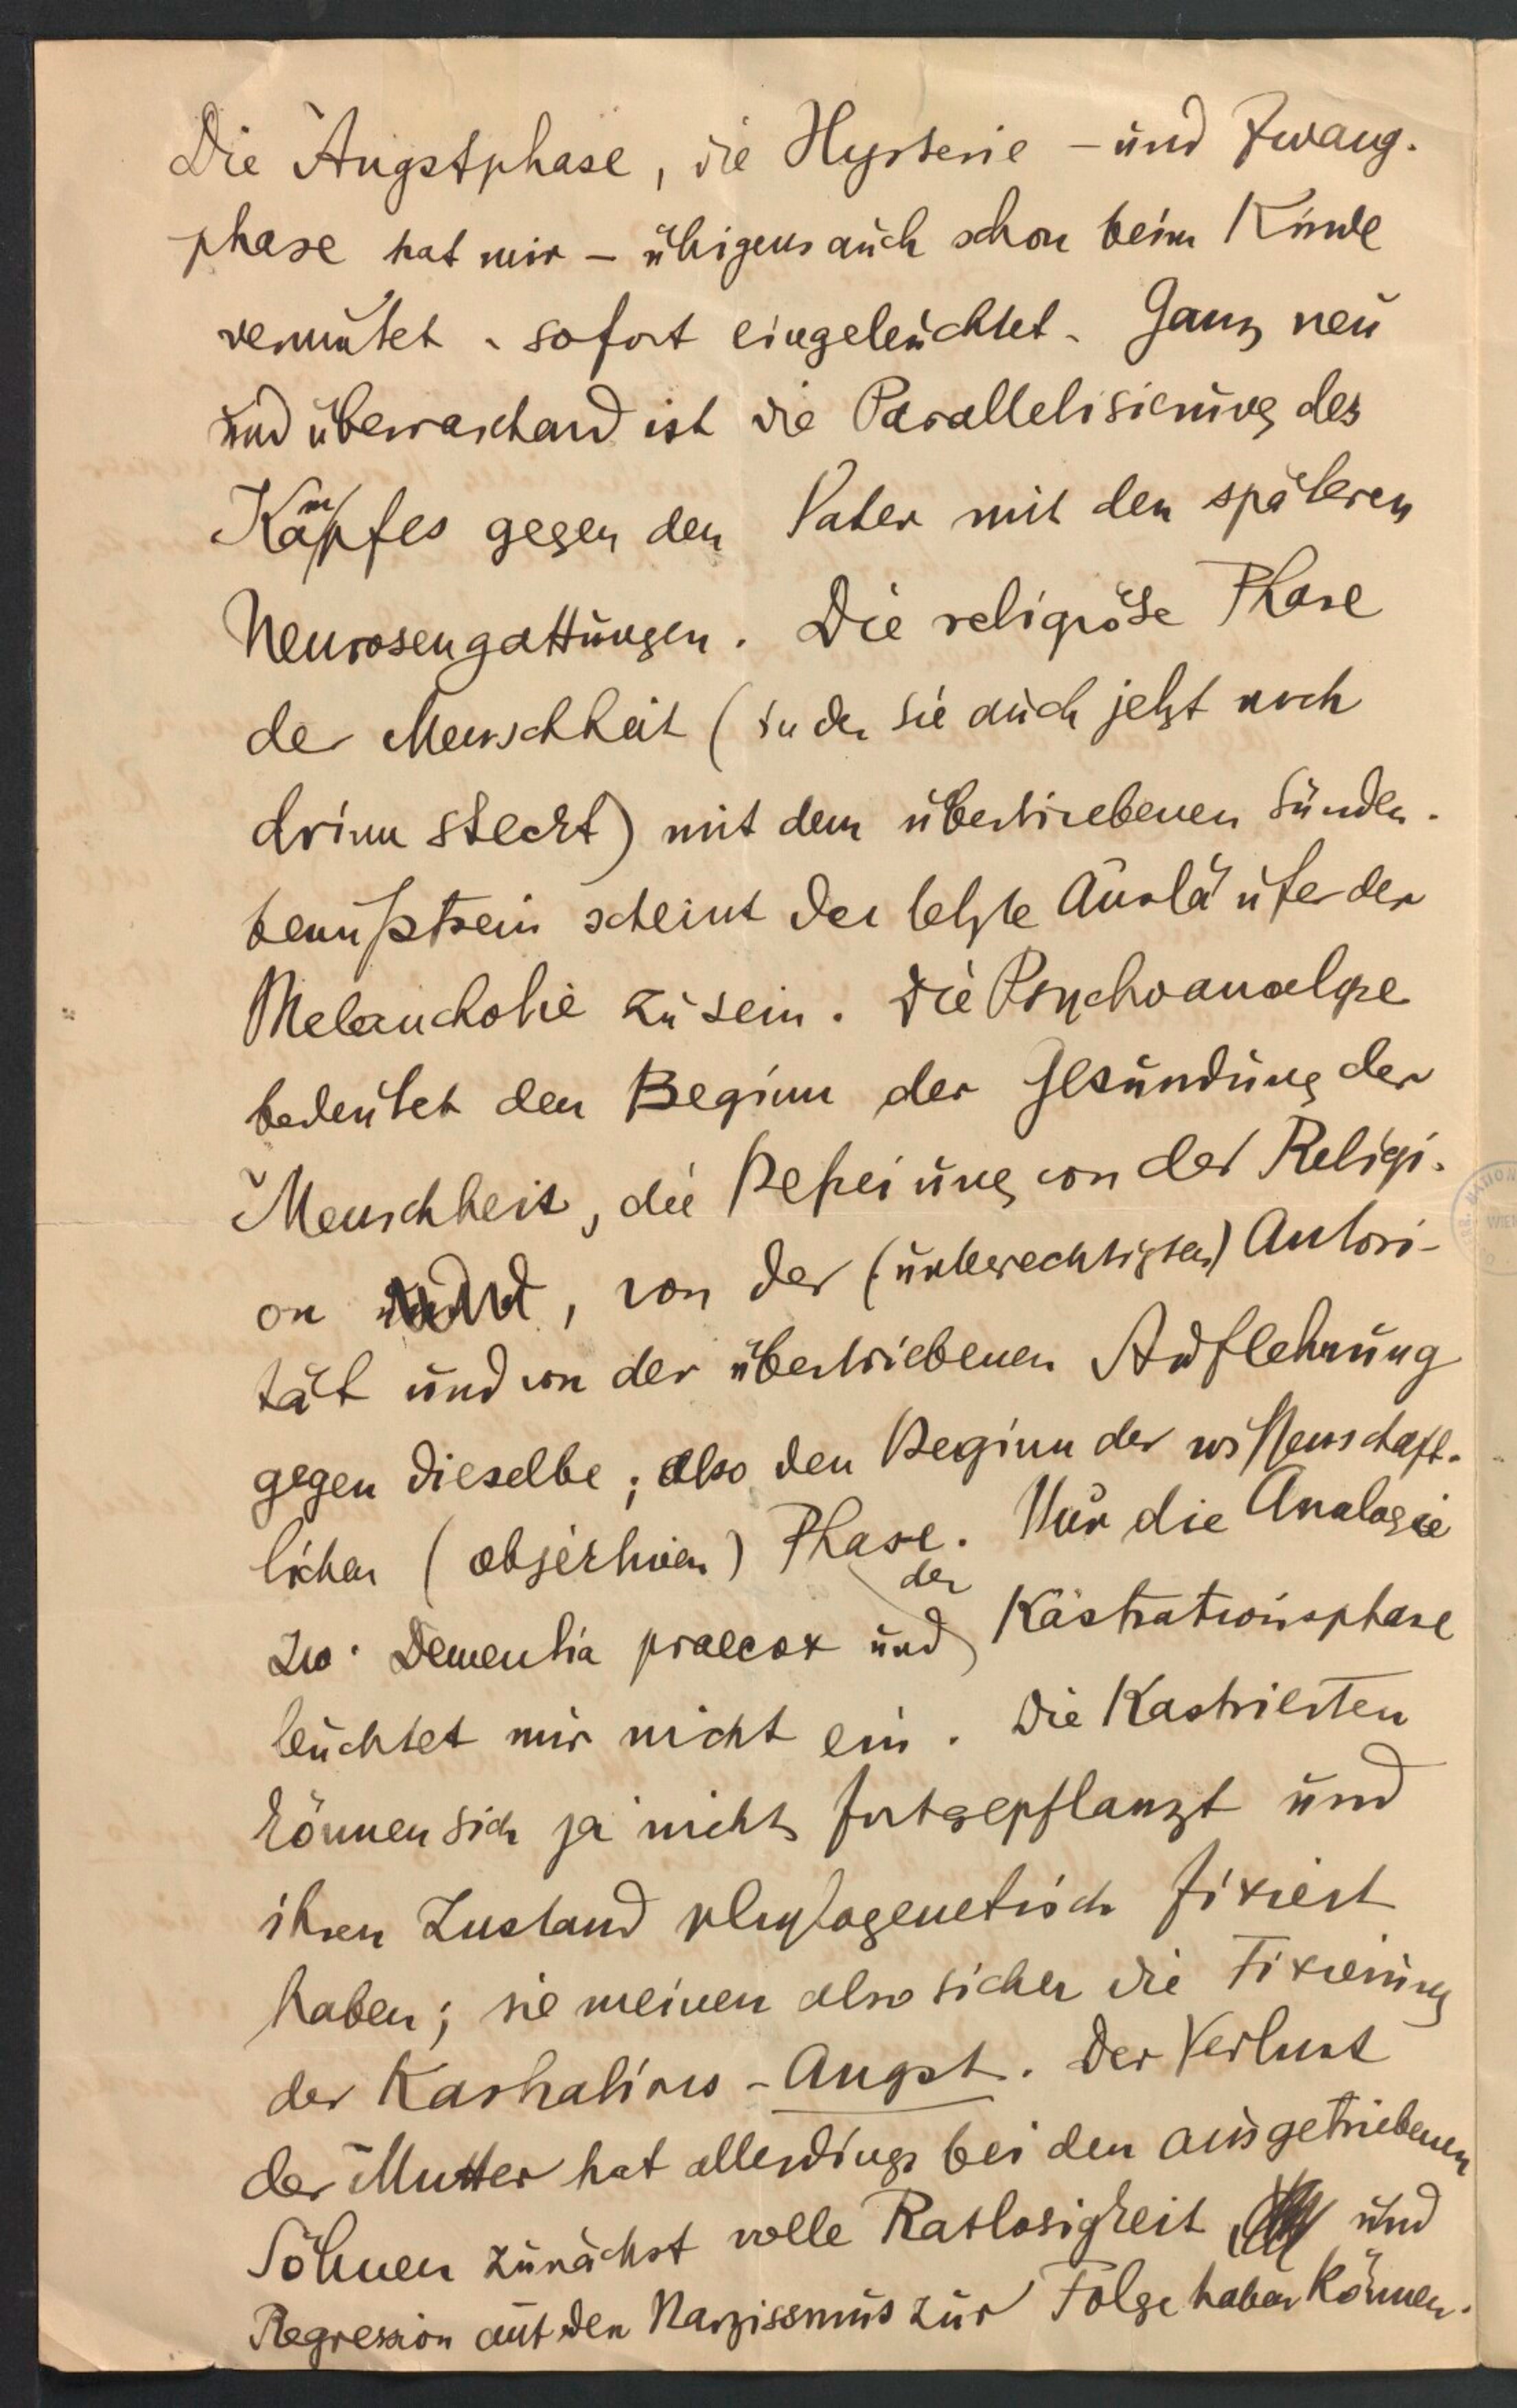 Die Angstphase, die Hysterie - und Zwang-
phase hat mir - übrigens auch schon beim Kinde
vermutet - sofort eingeleuchtet. Ganz neu
und überraschend ist die Parallelisierung des
Kampfes gegen den Vater mit den späteren
Neurosengattungen. Die religiöse Phase
der Menschheit (in der sie auch jetzt noch
drinn steckt) mit dem übertriebenen Sünden-
bewußtsein scheint der letzte Ausläufer der
Melancholie zu sein. Die Psychoanalyse
bedeutet den Beginn der Gesundung der
Menschheit, die Befreiung von der Religi-
on , von der (unberechtigten) Autori-
tät und von der übertriebenen Auflehnung
gegen dieselbe; also den Beginn der wissenschaft-
lichen (objektiven) Phase. Nur die Analogie
zw. Dementia praecox und der Kastrationsphase
leuchtet mir nicht ein. Die Kastrierten
können sich ja nicht fortgepflanzt und
ihren Zustand phylogenetisch fixiert
haben; sie meinen also sicher die Fixierung
der Kastrations-Angst. Der Verlust
der Mutter hat allerdings bei den ausgetriebenen
Söhnen zunächst volle Ratlosigkeit und
Regression auf den Narzissmus zur Folge haben können.
WIEN